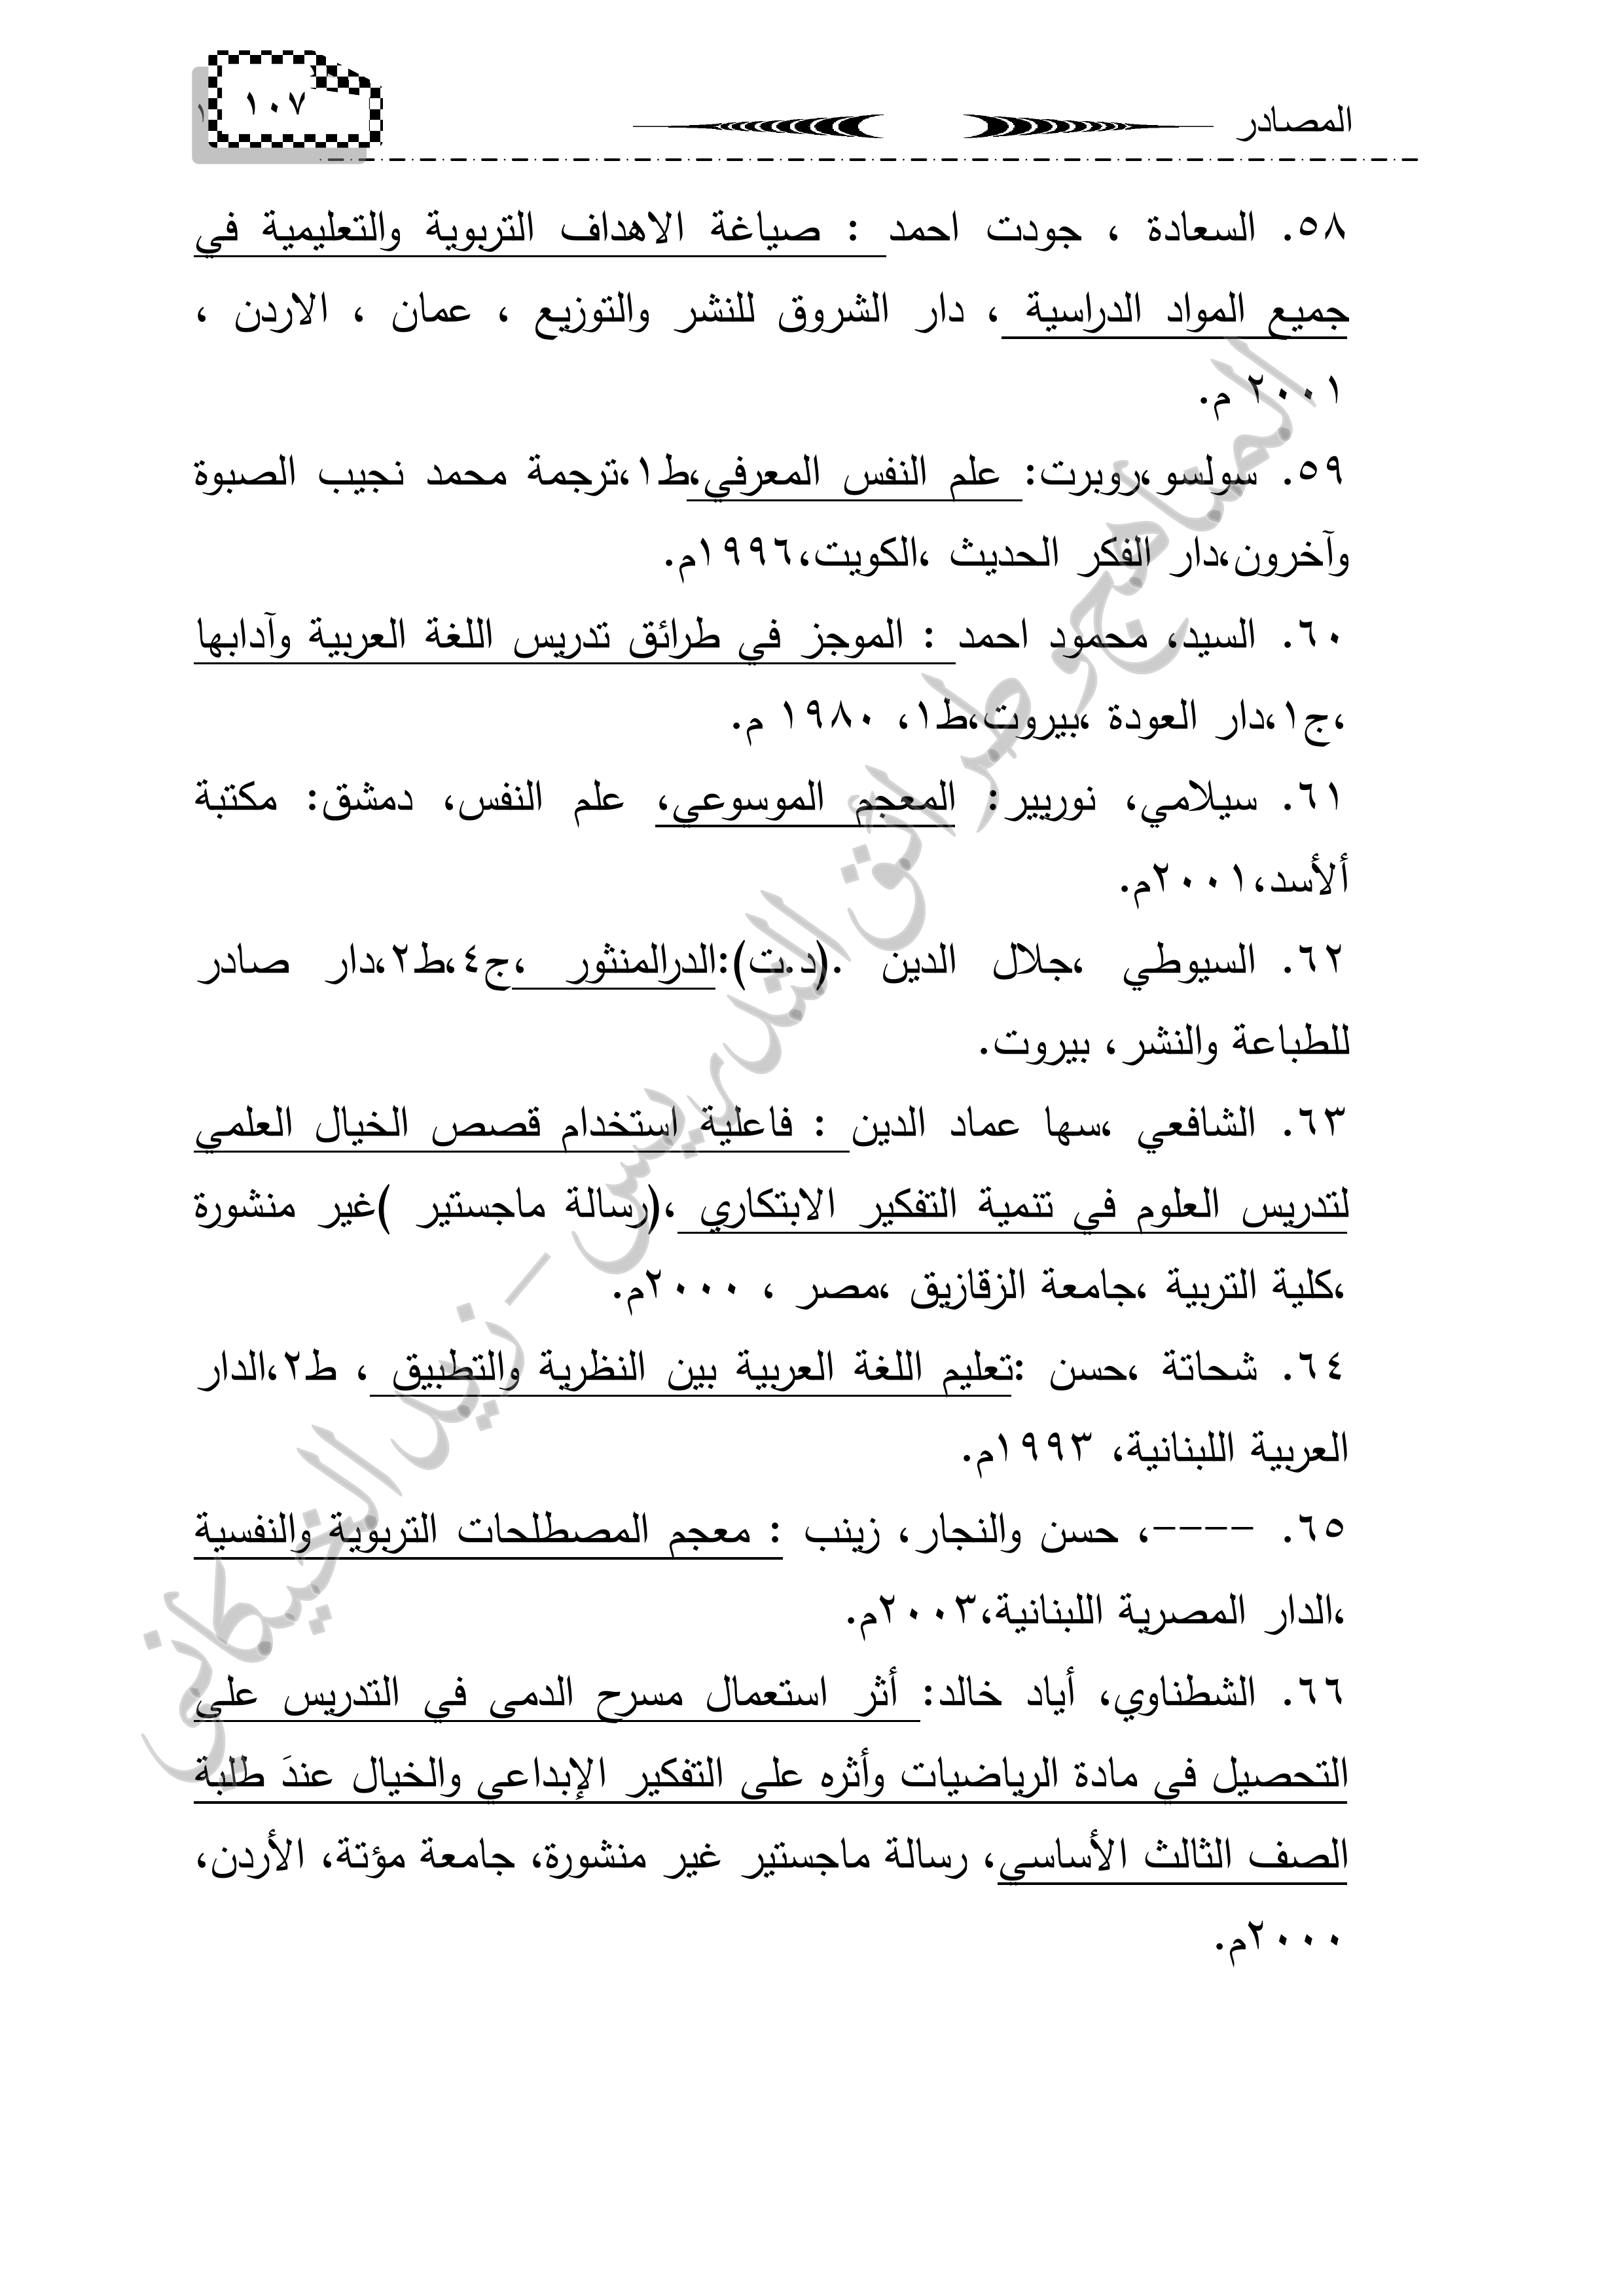 المصادر
١٠٧
٥٨. السعادة ، جودت احمد : صياغة الاهداف التربوية والتعليمية في
جميع المواد الدراسية ، دار الشروق للنشر والتوزيع ، عمان ، الاردن ،
٢٠٠١ م.
٥٩. سولسو،روبرت: علم النفس المعرفي،ط١،ترجمة محمد نجيب الصبوة
وآخرون،دار الفكر الحديث ،الكويت،١٩٩٦م.
٦٠. السيد، محمود احمد : الموجز في طرائق تدريس اللغة العربية وآدابها
،ج١،دار العودة ،بيروت،ط١، ١٩٨٠ م.
٦١. سيلامي، نوربير: المعجم الموسوعي، علم النفس، دمشق: مكتبة
ألأسد،٢٠٠١م.
٦٢. السيوطي ،جلال الدين .(د.ت):الدرالمنثور ،ج٤،ط٢،دار صادر
للطباعة والنشر، بيروت.
٦٣. الشافعي ،سها عماد الدين : فاعلية استخدام قصص الخيال العلمي
لتدريس العلوم في تنمية التفكير الابتكاري ،(رسالة ماجستير )غير منشورة
،كلية التربية ،جامعة الزقازيق ،مصر ، ٢٠٠٠م.
٦٤. شحاتة ،حسن :تعليم اللغة العربية بين النظرية والتطبيق ، ط٢،الدار
العربية اللبنانية، ١٩٩٣م.
٦٥. ----، حسن والنجار، زينب : معجم المصطلحات التربوية والنفسية
،الدار المصرية اللبنانية،٢٠٠٣م.
٦٦. الشطناوي، أياد خالد: أثر استعمال مسرح الدمى في التدريس على
التحصيل في مادة الرياضيات وأثره على التفكير الإبداعي والخيال عندَ طلبة
الصف الثالث الأساسي، رسالة ماجستير غير منشورة، جامعة مؤتة، الأردن،
٢٠٠٠م.
المناهج و طرائق التدريس - زيد الخيكاني